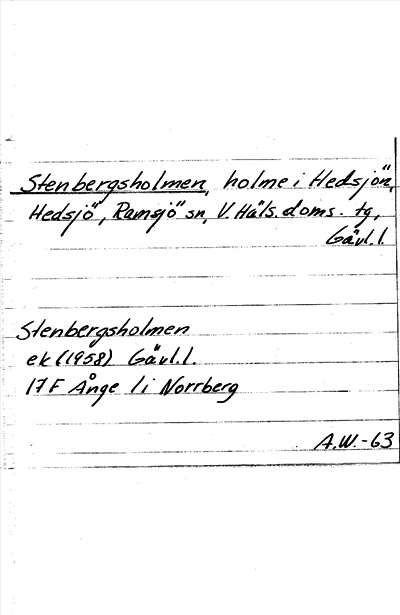 Stenbergsholmen, holme i Hedsjön,
Hedsjö, Ramsjö sn, V. Häls. doms. tg,
Gävl.l.
Stenbergsholmen
ek (1958) Gävl.l.
17 F Ånge 1 i Norrberg
A.W.-63